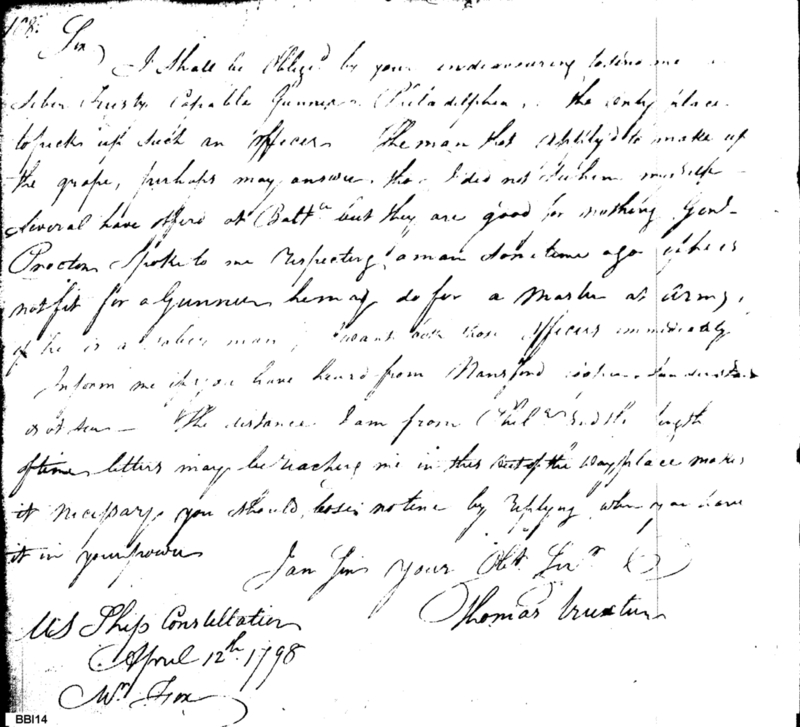 108.
Sir
I Shall be Oblig'd by your endeavouring to send me a
Sober Trusty Capable Gunner Philadelphia the only place
to pick up such an officer. The man that applily'd to make up
the grape, perhaps may answer, tho I did not him myself
Several have offerd at Balte but they are good for nothing Genl
Procter Spoke to me respecting a man sometime ago if he is
not fit for a Gunner he may do for a Master at Arms,
if he is a sober man, I want both those officers immediately
Inform me if you have heard from
or not The distance I am from Phila and the length
of time letters may be reaching me in this out of the way place makes
it necessary you should lose no time by replying when you have
it in your power
I am Sir your Obt Servt
Thomas Truxtun
US Ship Constellation
April 12th 1798
Mr Fox
BBI14